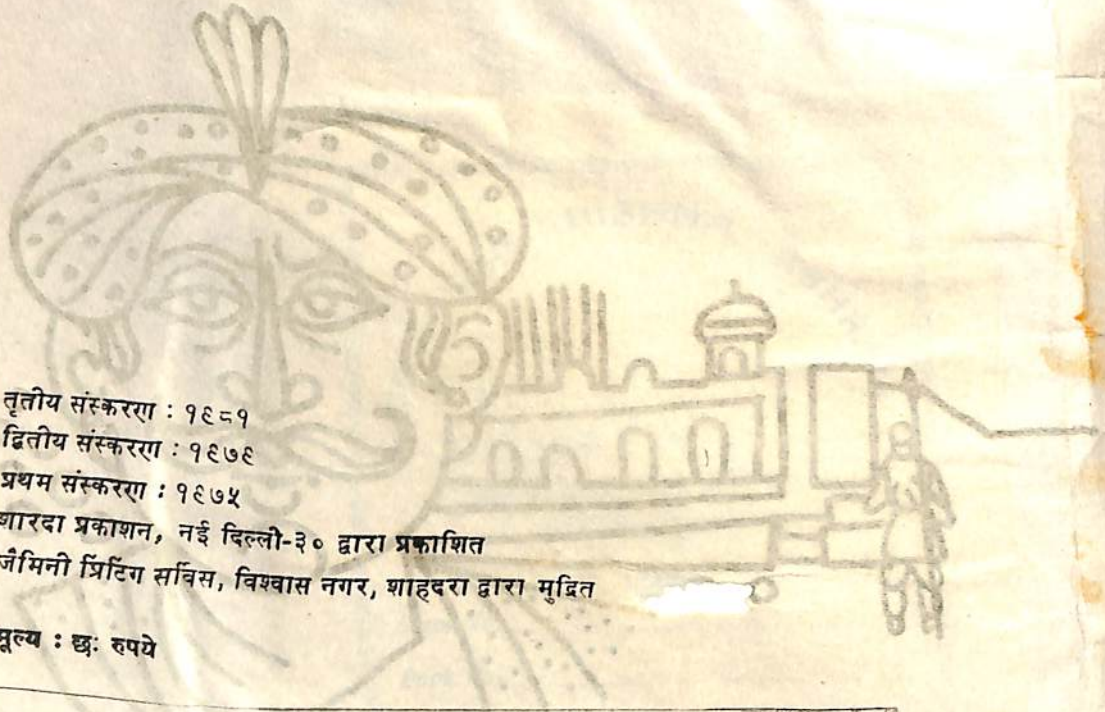 तृतीय संस्करण : १९८१
द्वितीय संस्करण : १९७९
प्रथम संस्करण : १९७५
शारदा प्रकाशन, नई दिल्ली-३० द्वारा प्रकाशित
जैमिनी प्रिंटिंग सर्विस, विश्वास नगर, शाहदरा द्वारा मुद्रित
मूल्य : छः रुपये